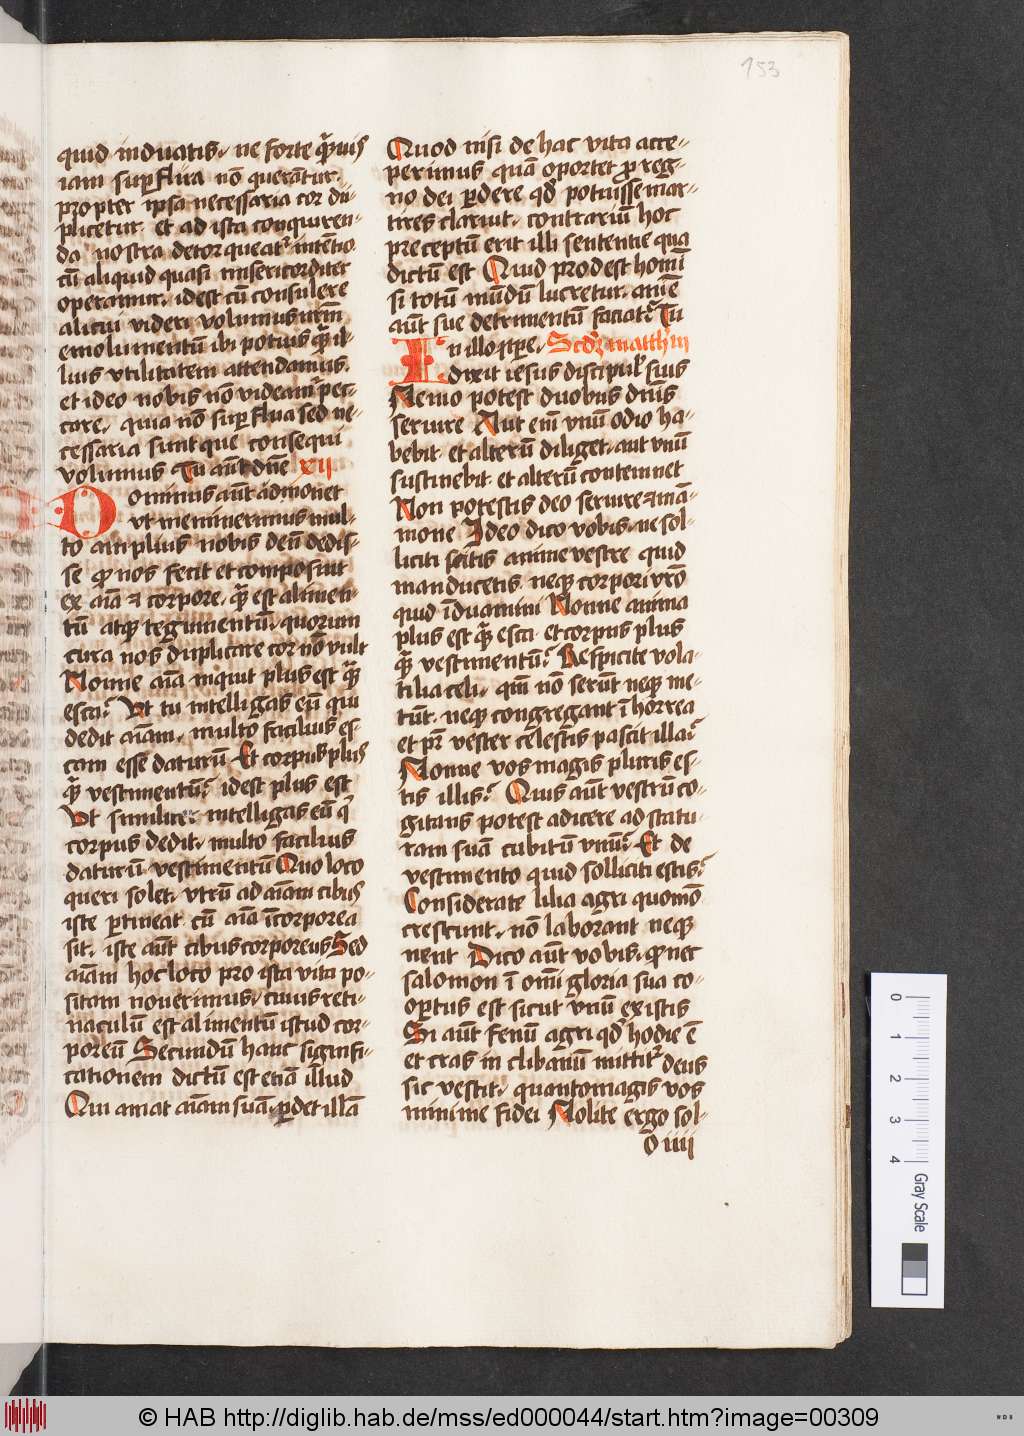 153
quid induatis. ne forte qͣuis
iam suꝑflua nō querātur.
propter ipsa necessaria cor du-
plicetur. et ad ista conquiren-
da nostra detorqueatʳ intētio
cū aliquid quasi misericorditer
operamur. idest cū consulere
alicui videri volumus nr̄m
emolumentū ibi potius qͣ il-
lius vtilitatem attendamus.
et ideo nobis nō videamʳ pec-
care. quia nō suꝑflua sed ne-
cessaria sunt que consequi
volumus Tu aūt dn̄e xii
Dominus aūt admonet
vt meminerimus mul-
to amplius nobis deū dedis-
se ꝙ nos fecit et composuit
ex aīa ⁊ corpore. qͣ est alimen-
tū atqꝫ tegumentū. quorum
cura nos duplicare cor nō vult
Nonne aīa inquit plus est qͣ
esca? Vt tu intelligas eū qui
dedit aīam. multo facilius es-
cam esse daturū Et corpus plus
qͣ vestimentū? idest plus est
Vt similiter intelligas eū qͥ
corpus dedit. multo facilius
daturū vestimentū Quo loco
queri solet. vtrū ad aīam cibus
iste ꝑtineat. cū aīa īcorporea
sit. iste aūt cibus corporeus Sed
aīam hoc loco pro ista vita po-
sitam nouerimus. cuius reti-
naculū est alimentū istud cor-
poreū Secundū hanc signifi-
cationem dictū est etiā illud
Qui amat aīam suā. ꝑdet illā
Quod nisi de hac vita acce-
perimus quā oportet ꝓ reg-
no dei ꝑdere qd̓ potuisse mar-
tires claruit. contrariū hoc
preceptū erit illi sententie qua
dictū est Quid prodest homī
si totū mūdū lucretur. anīe
aūt sue detrimentū faciatʳ Tu
In illo tꝑe. Scdꝫ mattheū
dixit iesus discipuł suis
Nemo potest duobus dn̄is
seruire Aut enī vnū odio ha-
bebit. et alterū diliget. aut vnū
sustinebit. et alterū contemnet
Non potestis deo seruire ⁊ mā-
mone Ideo dico vobis. ne sol-
liciti scitis anime vestre quid
manducetis. neqꝫ corpori vr̄o
quid īduamini Nonne anima
plus est qͣ esca. et corpus plus
qͣ vestimentū? Respicite vola-
tilia celi. qm̄ nō serūt neqꝫ me-
tūt. neqꝫ congregant ī horrea
et pr̄ vester celestis pascit illa?
Nonne vos magis pluris es-
tis illis? Quis aūt vestrū co-
gitans potest adicere ad statu-
ram suā cubitū vnū? Et de
vestimento quid solliciti estis?
Considerate lilia agri quomō
crescunt. nō laborant neqꝫ
nent Dico aūt vobis. ꝙ nec
salomon ī omī gloria sua co-
optus est sicut vnū ex istis
Si aūt fenū agri qd̓ hodie ē
et cras in clibanū mittitʳ deus
sic vestit. quanto magis vos
minime fidei Nolite ergo sol-
o iiii
0 1 2 3 4
Gray Scale
© HAB http://diglib.hab.de/mss/ed000044/start.htm?image=00309